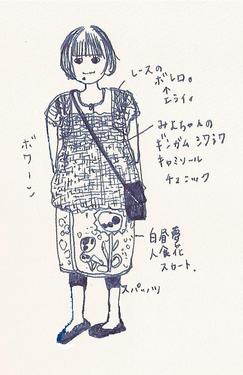 レースの
ボレロ。
↑
エライ。
みよちゃんの
ギンガム シワシワ
キャミソール
チュニック
ボワーン
白昼夢
人食花
スカート.
スパッツ